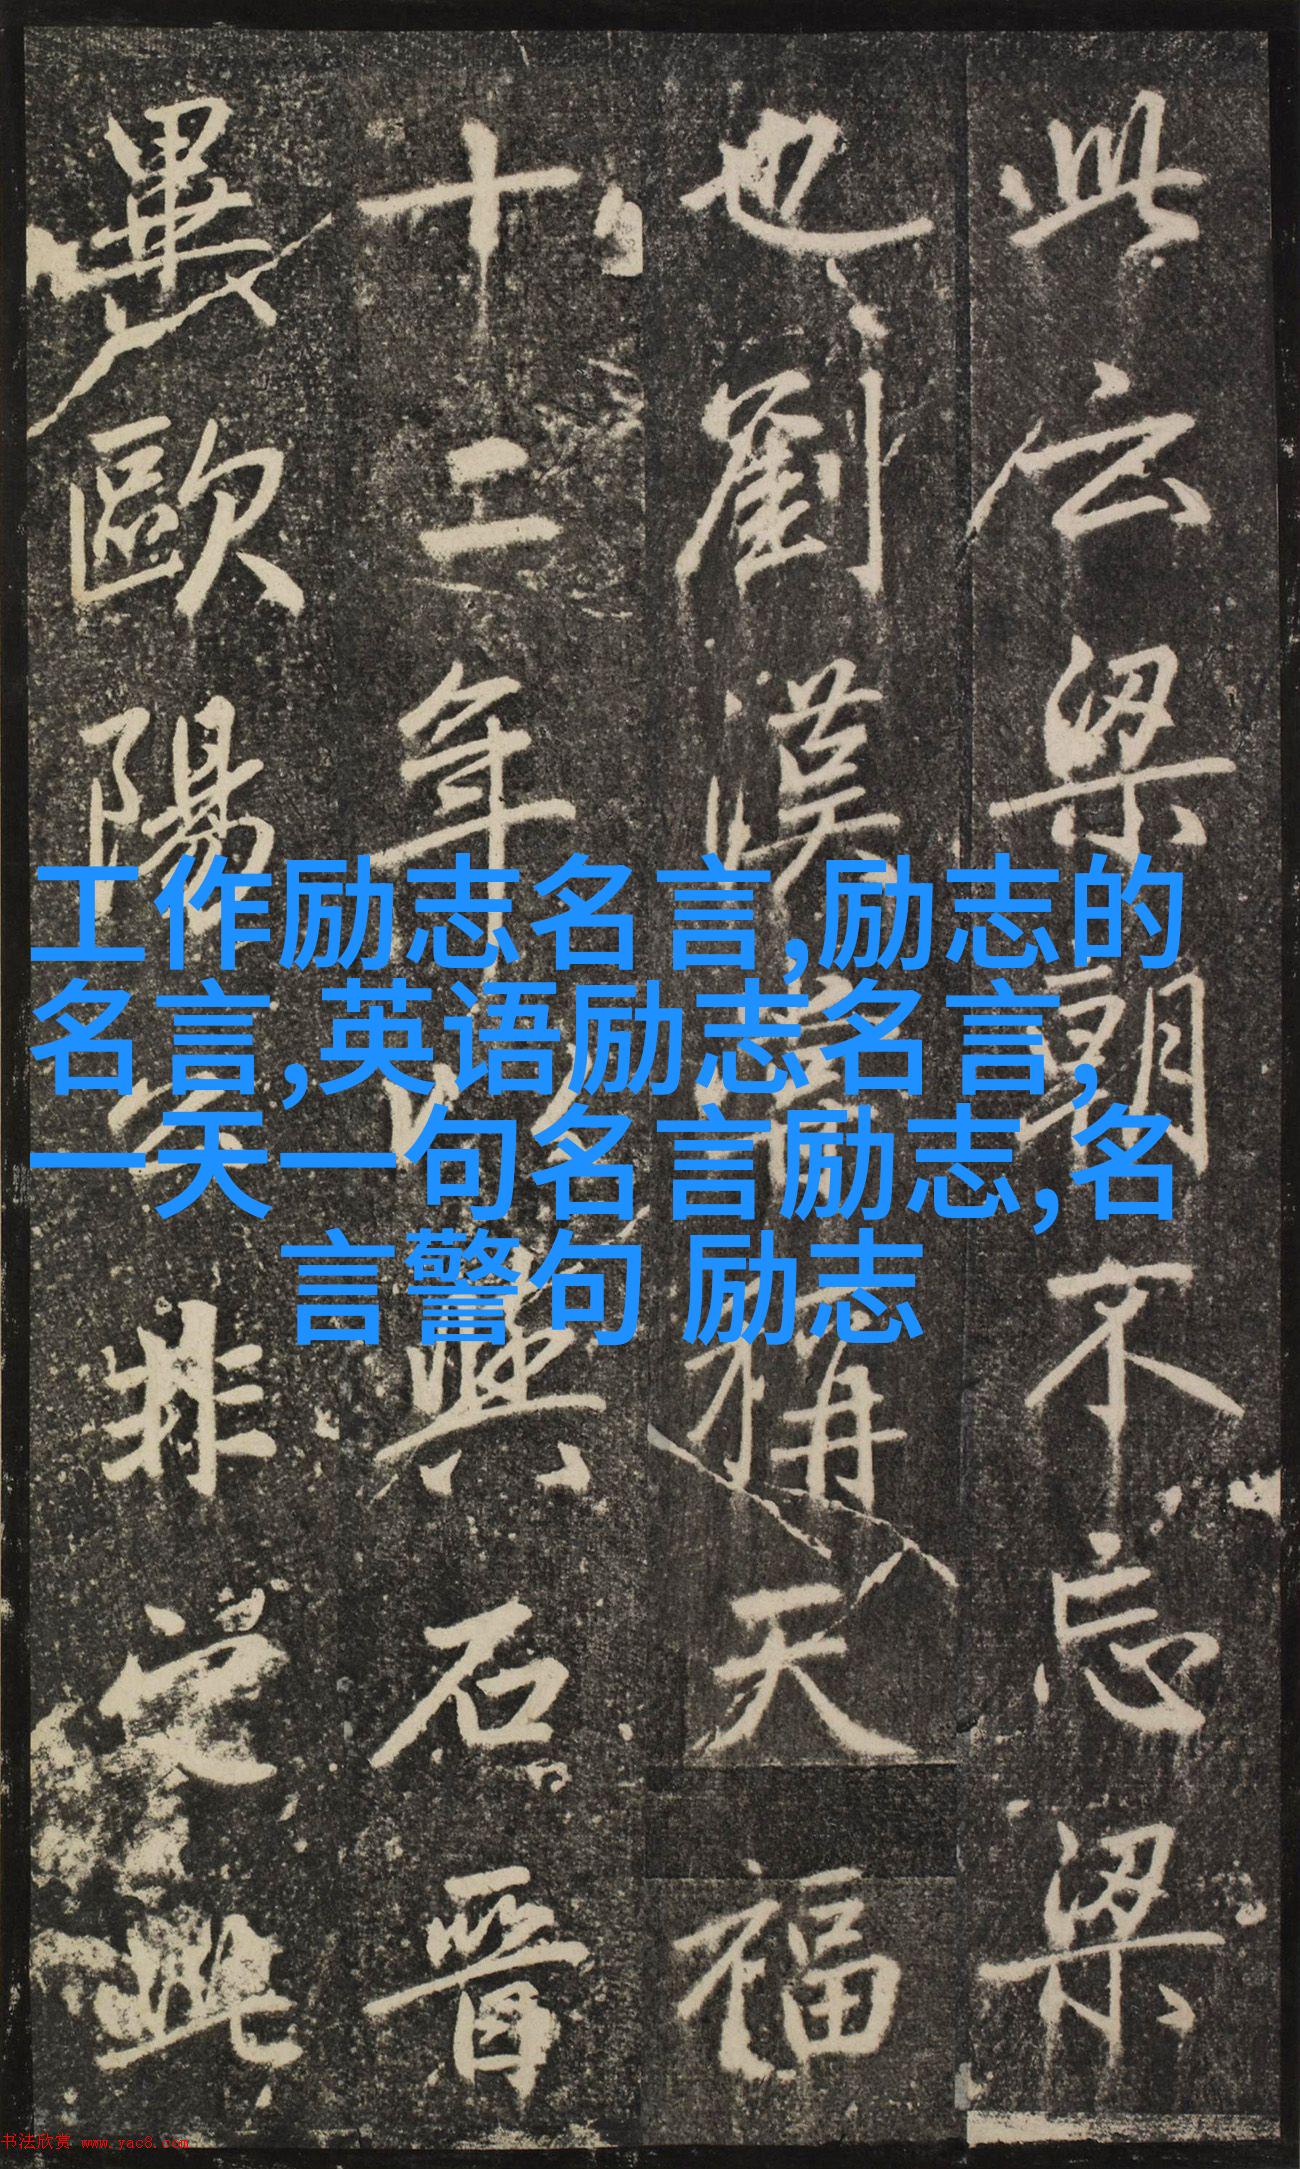 此云梁朝不忘梁
也劉漢稱天福
十二年與石晉
歐陽非此
工作励志名言,励志的
名言,英语励志名言,
一天一句名言励志,名
言警句 励志
书法欣赏 www.yac8.com